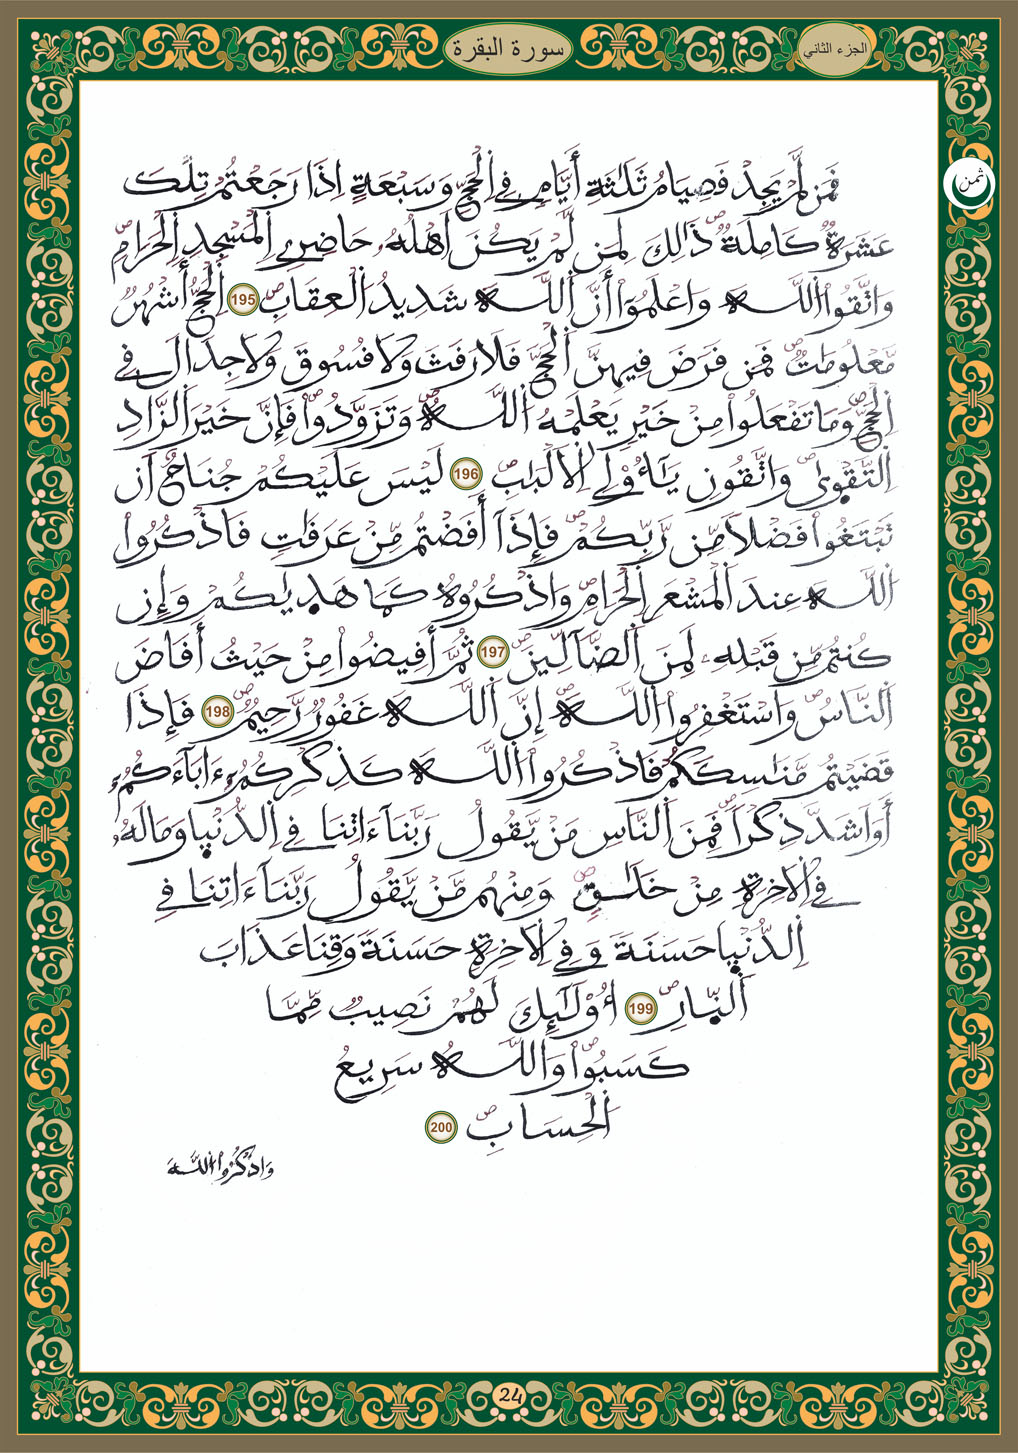 سورة البقرة
الجزء الثاني
ثمن
فَمَن لَّمْ يَجِدْ فَصِيَامُ ثَلَٰثَةِ أَيَّامٖ فِے اِ۬لْحَجِّ وَسَبْعَةٍ اِذَا رَجَعْتُمْ تِلْكَ
عَشَرَةٞ كَامِلَةٞ ۖ ذَٰلِكَ لِمَن لَّمْ يَكُنَ اَهْلُهُۥ حَاضِرِے اِ۬لْمَسْجِدِ اِ۬لْحَرَامِ ۖ
وَاتَّقُوا اُ۬للَّهَ وَاعْلَمُوٓا أَنَّ اَ۬للَّهَ شَدِيدُ اُ۬لْعِقَابِ ۖ 195 اِ۬لْحَجُّ أَشْهُرٞ
مَّعْلُومَٰتٞ ۖ فَمَن فَرَضَ فِيهِنَّ اَ۬لْحَجَّ فَلَا رَفَثَ وَلَا فُسُوقَ وَلَا جِدَالَ فِے
اِ۬لْحَجِّ ۖ وَمَا تَفْعَلُوا مِنْ خَيْرٖ يَعْلَمْهُ اُ۬للَّهُ ۖ وَتَزَوَّدُوا فَإِنَّ خَيْرَ اَ۬لزَّادِ
اِ۬لتَّقْو۪ىٰ ۖ وَاتَّقُونِ يَٰٓأُوْلِے اِ۬لَالْبَٰبِ ۖ 196 لَيْسَ عَلَيْكُمْ جُنَاحٌ اَن
تَبْتَغُوا فَضْلاٗ مِّن رَّبِّكُمْ ۖ فَإِذَآ أَفَضْتُم مِّنْ عَرَفَٰتٖ فَاذْكُرُوا
اُ۬للَّهَ عِندَ اَ۬لْمَشْعَرِ اِ۬لْحَرَامِ ۖ وَاذْكُرُوهُ كَمَا هَد۪يٰكُمْ وَإِن
كُنتُم مِّن قَبْلِهِۦ لَمِنَ اَ۬لضَّآلِّينَ ۖ 197 ثُمَّ أَفِيضُوا مِنْ حَيْثُ أَفَاضَ
اَ۬لنَّاسُ ۖ وَاسْتَغْفِرُوا اُ۬للَّهَ ۖ إِنَّ اَ۬للَّهَ غَفُورٞ رَّحِيمٞ ۖ 198 فَإِذَا
قَضَيْتُم مَّنَٰسِكَكُمْ فَاذْكُرُوا اُ۬للَّهَ كَذِكْرِكُمُۥٓ ءَابَآءَكُمُۥٓ
أَوَ اَشَدَّ ذِكْراٗ ۖ فَمِنَ اَ۬لنَّاسِ مَنْ يَّقُولُ رَبَّنَآ ءَاتِنَا فِے اِ۬لدُّنْي۪ا وَمَا لَهُۥ
فِے اِ۬لَاخِرَةِ مِنْ خَلَٰقٖ ۖ وَمِنْهُم مَّنْ يَّقُولُ رَبَّنَآ ءَاتِنَا فِے
اِ۬لدُّنْي۪ا حَسَنَةٗ وَفِے اِ۬لَاخِرَةِ حَسَنَةٗ وَقِنَا عَذَابَ
اَ۬لنّ۪ارِ ۖ 199 أُوْلَٰٓئِكَ لَهُمْ نَصِيبٞ مِّمَّا
كَسَبُوا ۖ وَاللَّهُ سَرِيعُ
اُ۬لْحِسَابِ ۖ 200
وَاذْكُرُوا اُ۬للَّهَ
24